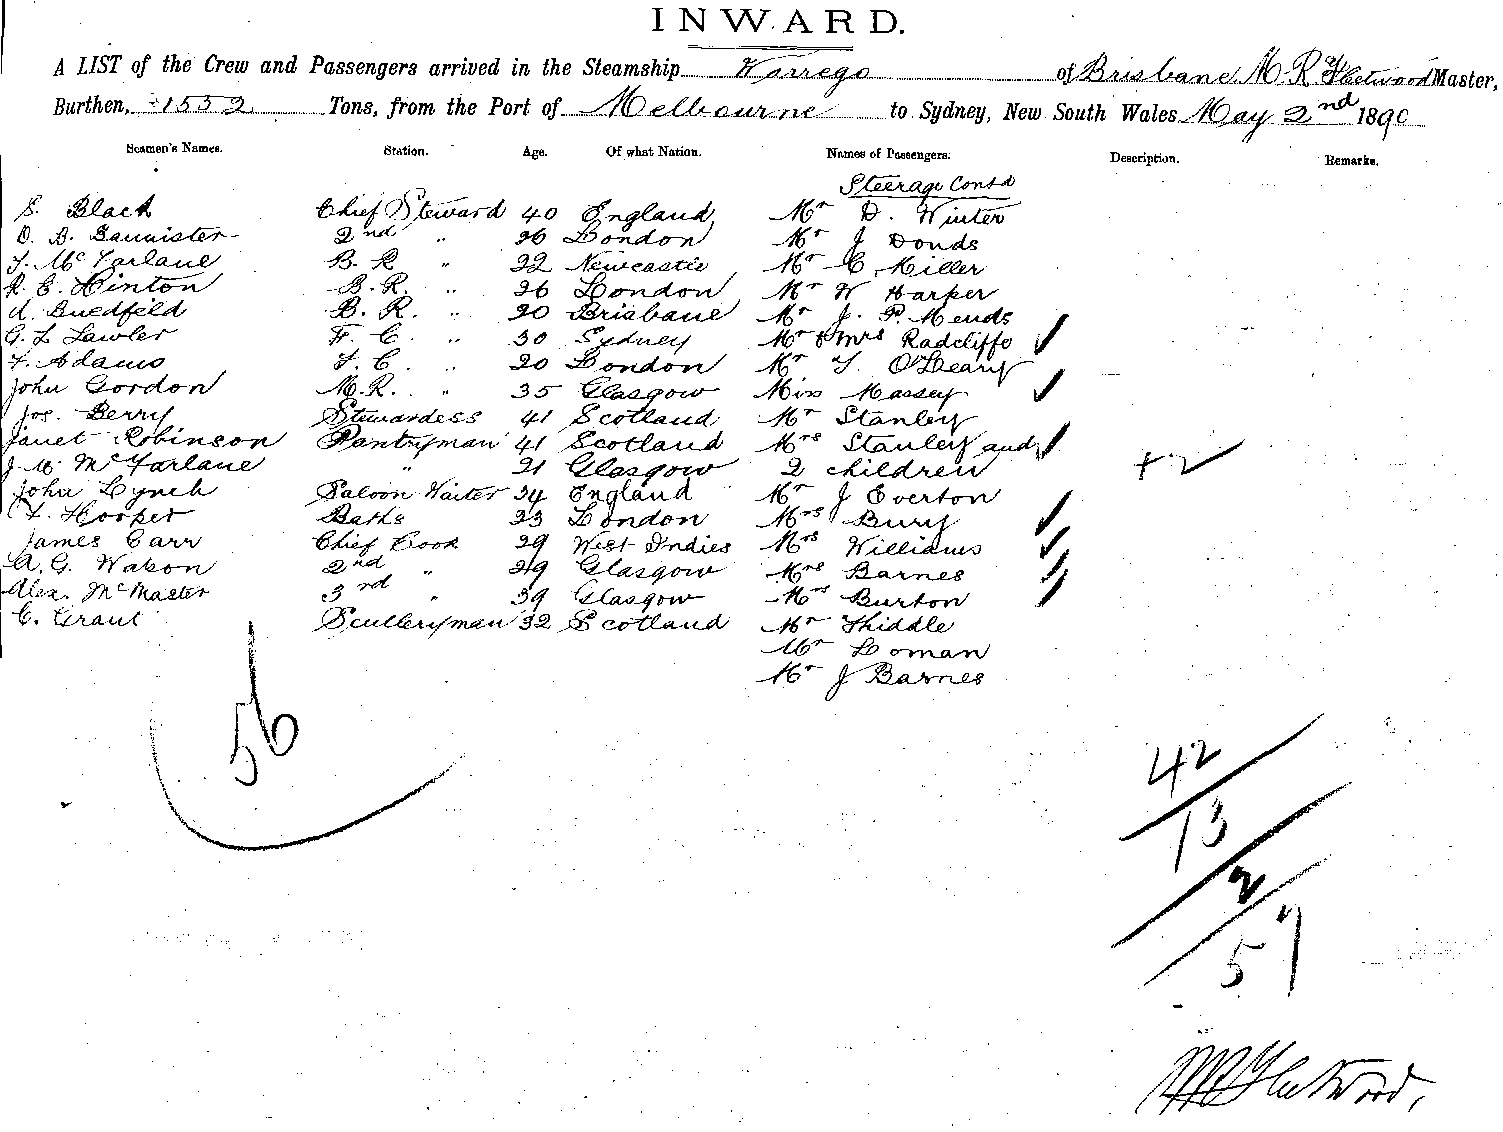 INWARD.
A LIST of the Crew and Passengers arrived in the Steamship Warrego of Brisbane, M. R. Fleetwood Master,
Burthen, 1532 Tons, from the Port of Melbourne to Sydney, New South Wales May 2nd 1890
Seamen's Names. Station. Age. Of what Nation. Names of Passengers. Description. Remarks.
Steerage Contd
S. Black Chief Steward 40 England Mr D. Winter
O. B. Bannister 2nd " 26 London Mr J Donds
McFarlane B. R " 22 Newcastle Mr C. Miller
R. E. Hinton B. R. " 26 London Mr W Harper
d. B. R. " 20 Brisbane Mr J. P. Mends
G. L Lawler F. C. " 30 Sydney Mr & Mrs Radcliffe
F. Adams F. C. " 20 London Mr T. O'Leary
John Gordon M. R. " 35 Glasgow Miss Massey
Jos. Berry Stewardess 41 Scotland Mr Stanley
Janet Robinson Pantryman 41 Scotland Mrs Stanley and
J. McFarlane " 21 Glasgow 2 children +2
John Lynch Saloon Waiter 34 England Mr J Everton
F. Hooper Baths 23 London Mrs Bury
James Carr Chief Cook 29 West Indies Mrs Williams
A. G. Watson 2nd " 29 Glasgow Mrs Barnes
Alex. McMaster 3rd " 39 Glasgow Mrs Burton
C. Grant Sculleryman 32 Scotland Mr Thiddle
Mr Loman
Mr J Barnes
56
42
13
2
57
MRFleetwood,